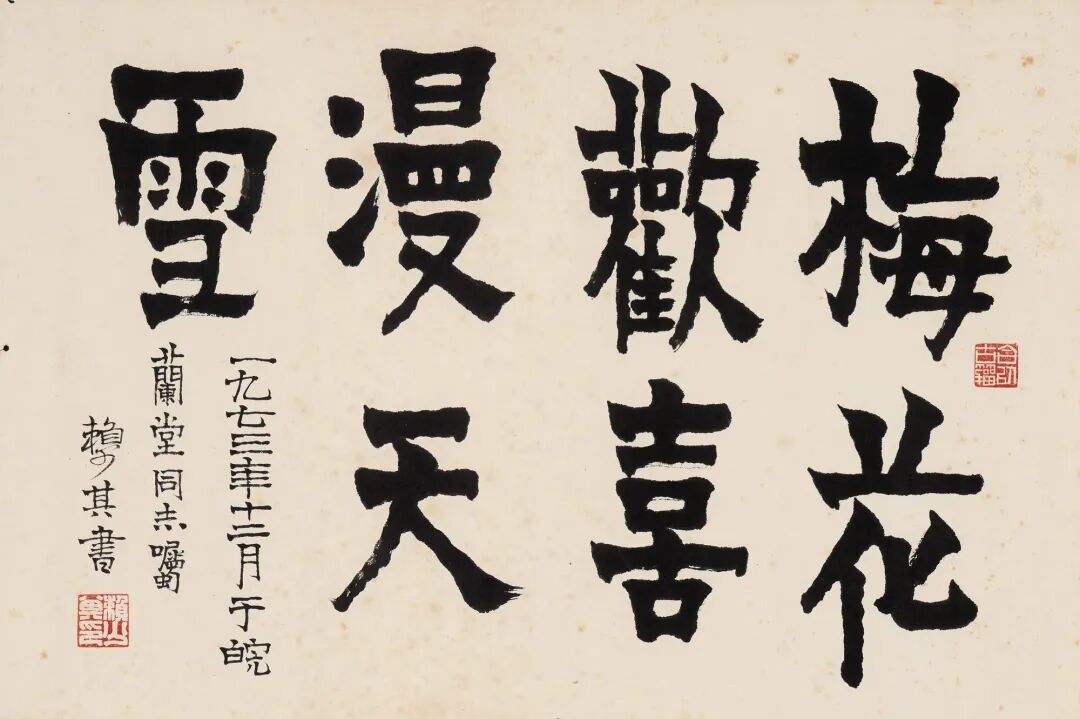 梅花
歡喜
漫天
雪
一九七三年十二月于皖
蘭堂同志囑
賴少其書